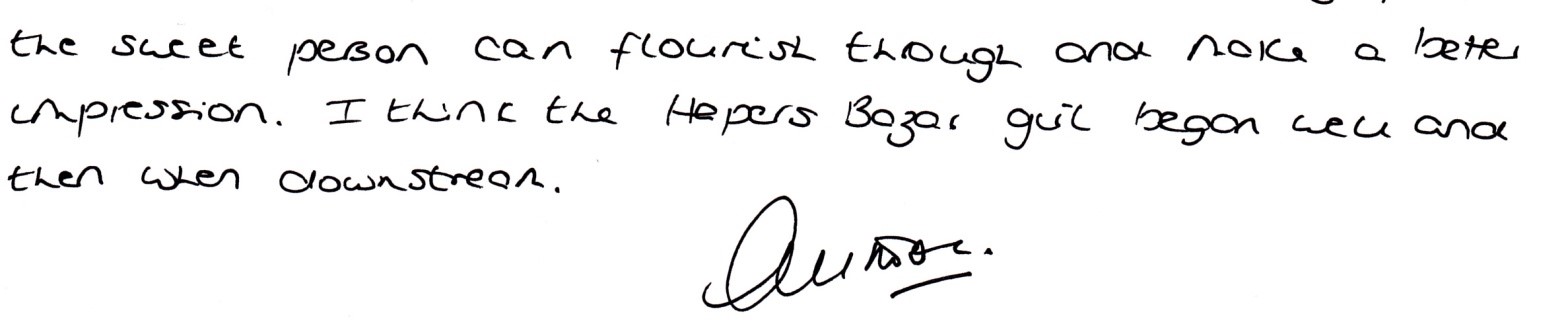 the sweet person can flourish though and make a better
impression. I think the Hapers Bazar girl began well and
then when downstream.